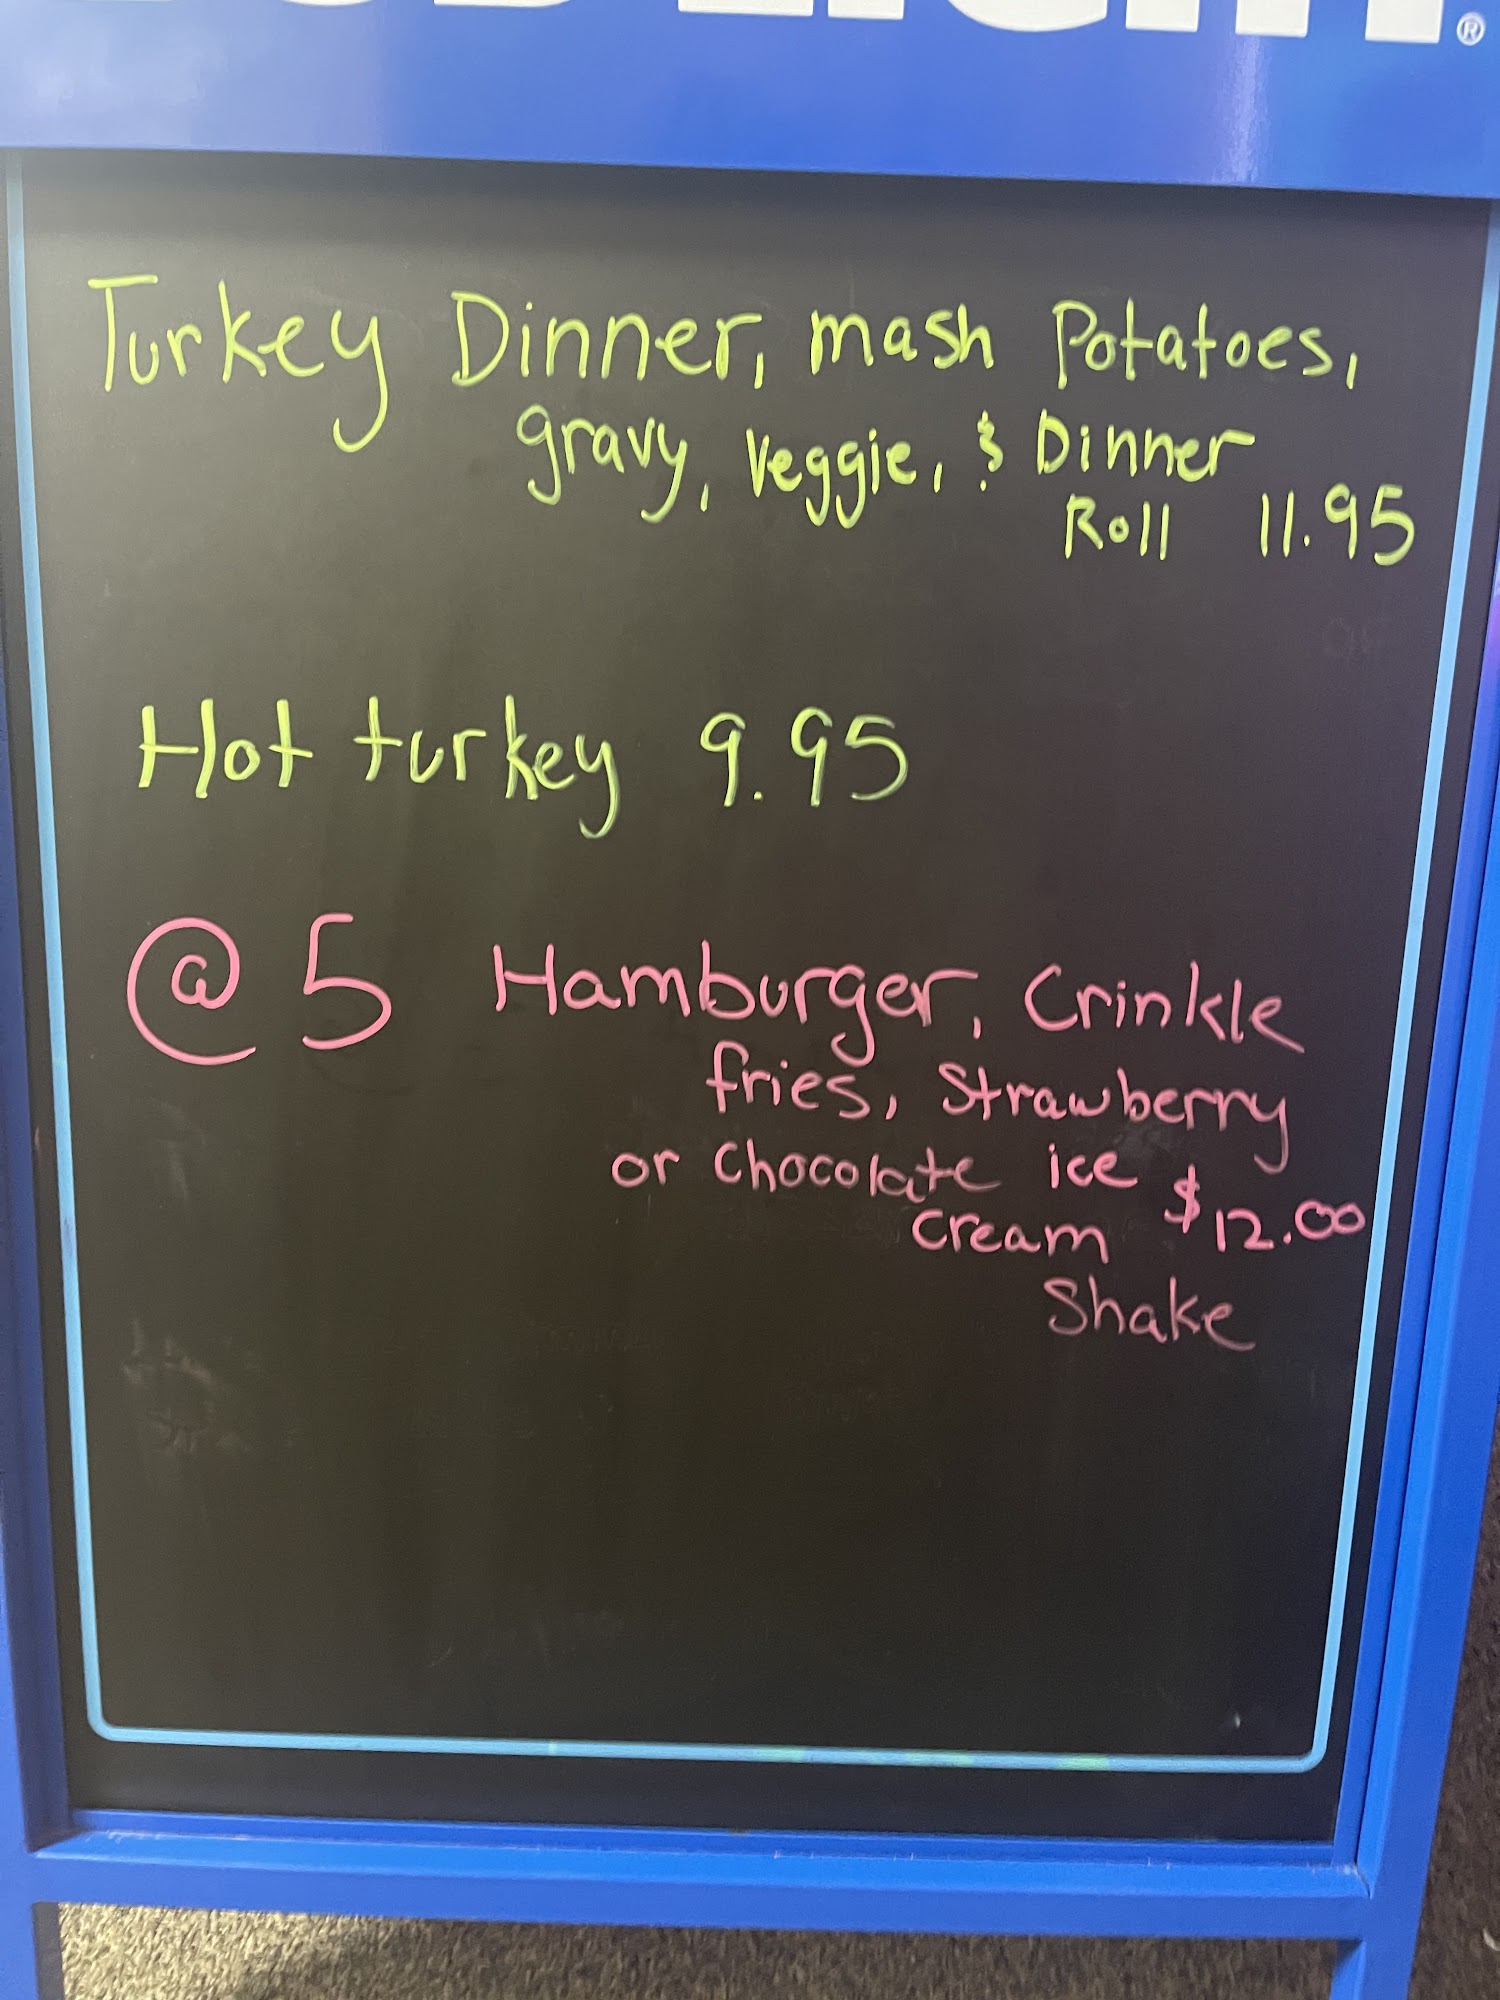 ®
Turkey Dinner, mash Potatoes,
gravy, veggie, & Dinner
Roll 11.95
Hot turkey 9.95
@ 5 Hamburger, Crinkle
fries, Strawberry
or Chocolate ice
cream $12.00
Shake